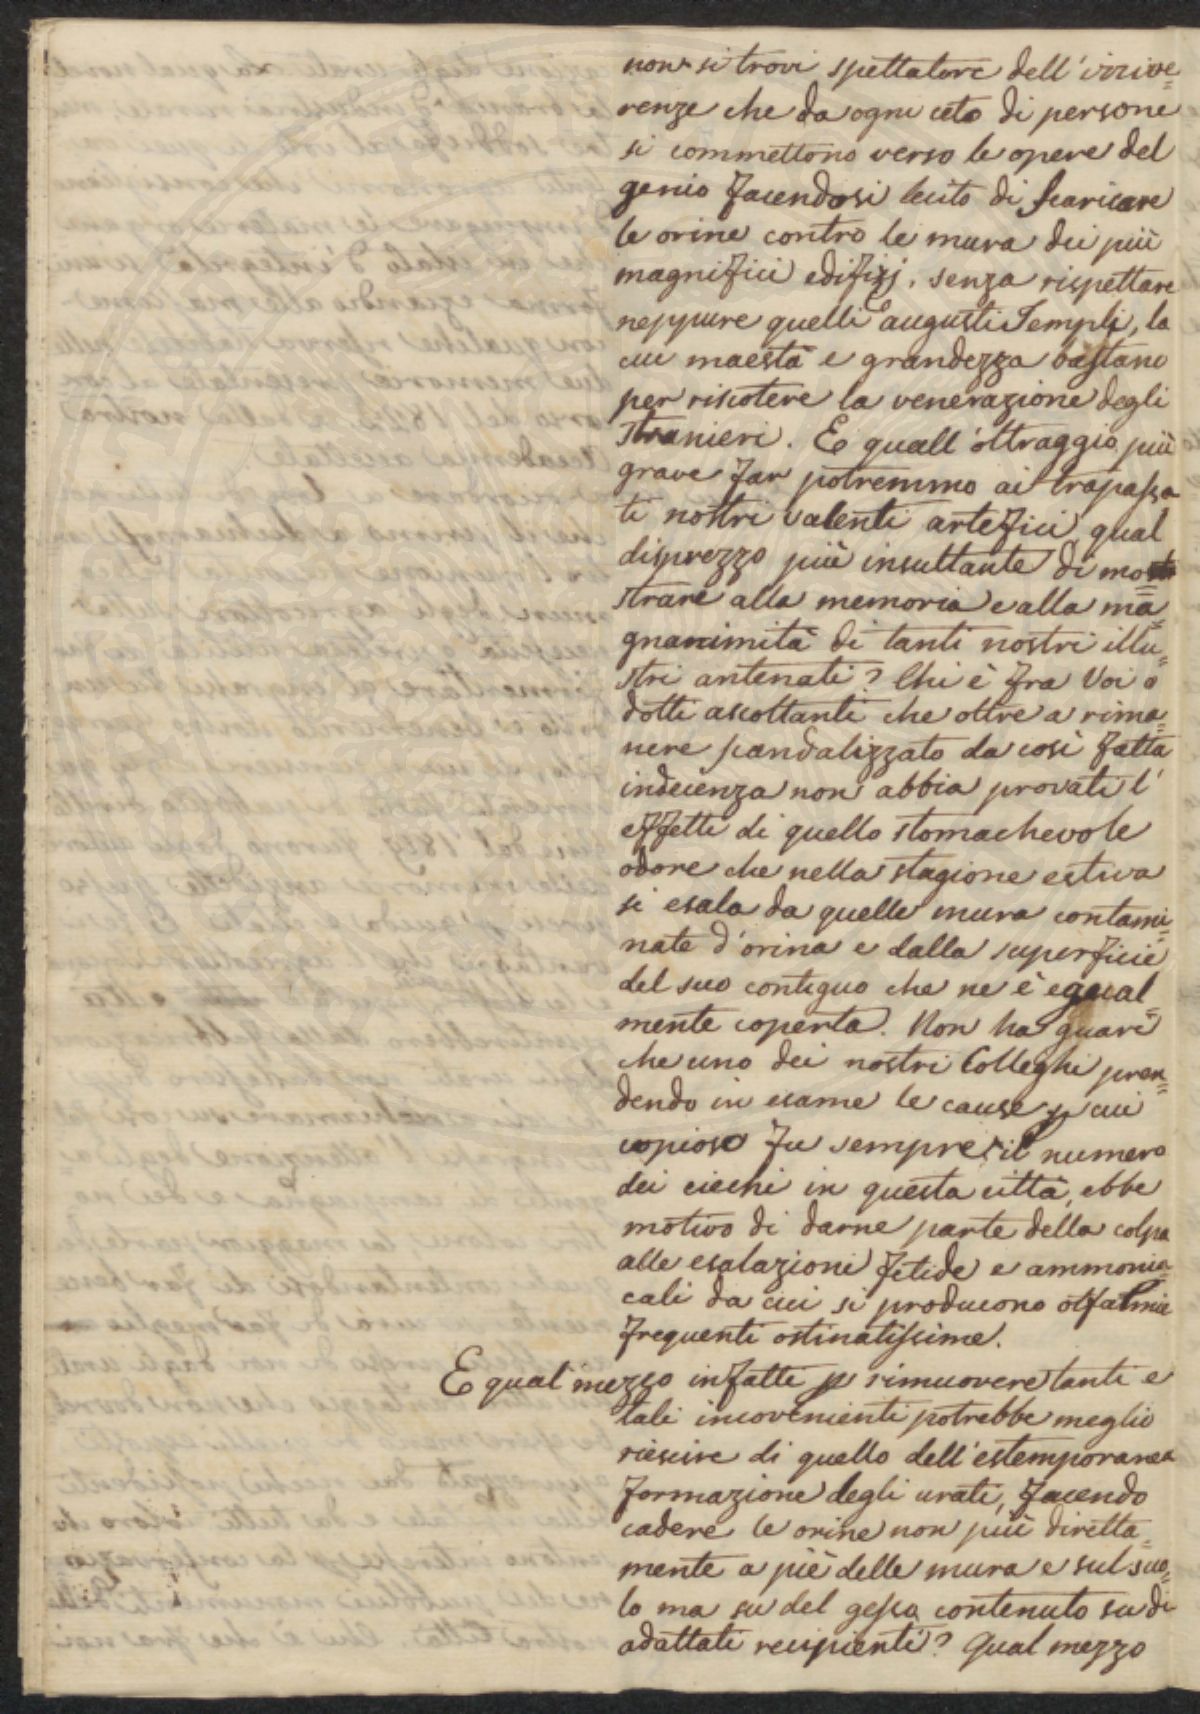 non si trovi spettatore dell'irrive=
renze che da ogni ceto di persone
si commettono verso le opere del
genio facendosi lecito di scaricare
le orine contro le mura dei più
magnifici edifizj, senza rispettare
neppure quelli augusti Templi, la
cui maestà e grandezza bastano
per riscotere la venerazione degli
stranieri. E quall'oltraggio più
grave far potremmo ai trapassa
ti nostri valenti artefici, qual
disprezzo più insultante di mo
strare alla memoria e alla ma=
gnanimità di tanti nostri illu=
stri antenati? Chi è fra Voi o
dotti ascoltanti che oltre a rima=
nere scandalizzato da così fatta
indecienza non abbia provati l'
effetti di quello stomachevole
odore che nella stagione estiva
si esala da quelle mura contami=
nate d'orina e dalla superficie
del suo contiguo che ne è egual=
mente coperta. Non ha guari
che uno dei nostri Colleghi pren=
dendo in esame le cause p cui
copioso fu sempre il numero
dei ciechi in questa città, ebbe
motivo di darne parte della colpa
alle esalazioni fetide e ammonia=
cali da cui si producono otfalmie
frequenti ostinatissime.
E qual mezzo infatti p rimuovere tanti e
tali incovenienti potrebbe meglio
riescire di quello dell'estemporanea
formazione degli urati, facendo
cadere le orine non più diretta=
mente a piè delle mura e sul suo=
lo ma su del gesso contenuto su di
adattati recipienti? Qual mezzo